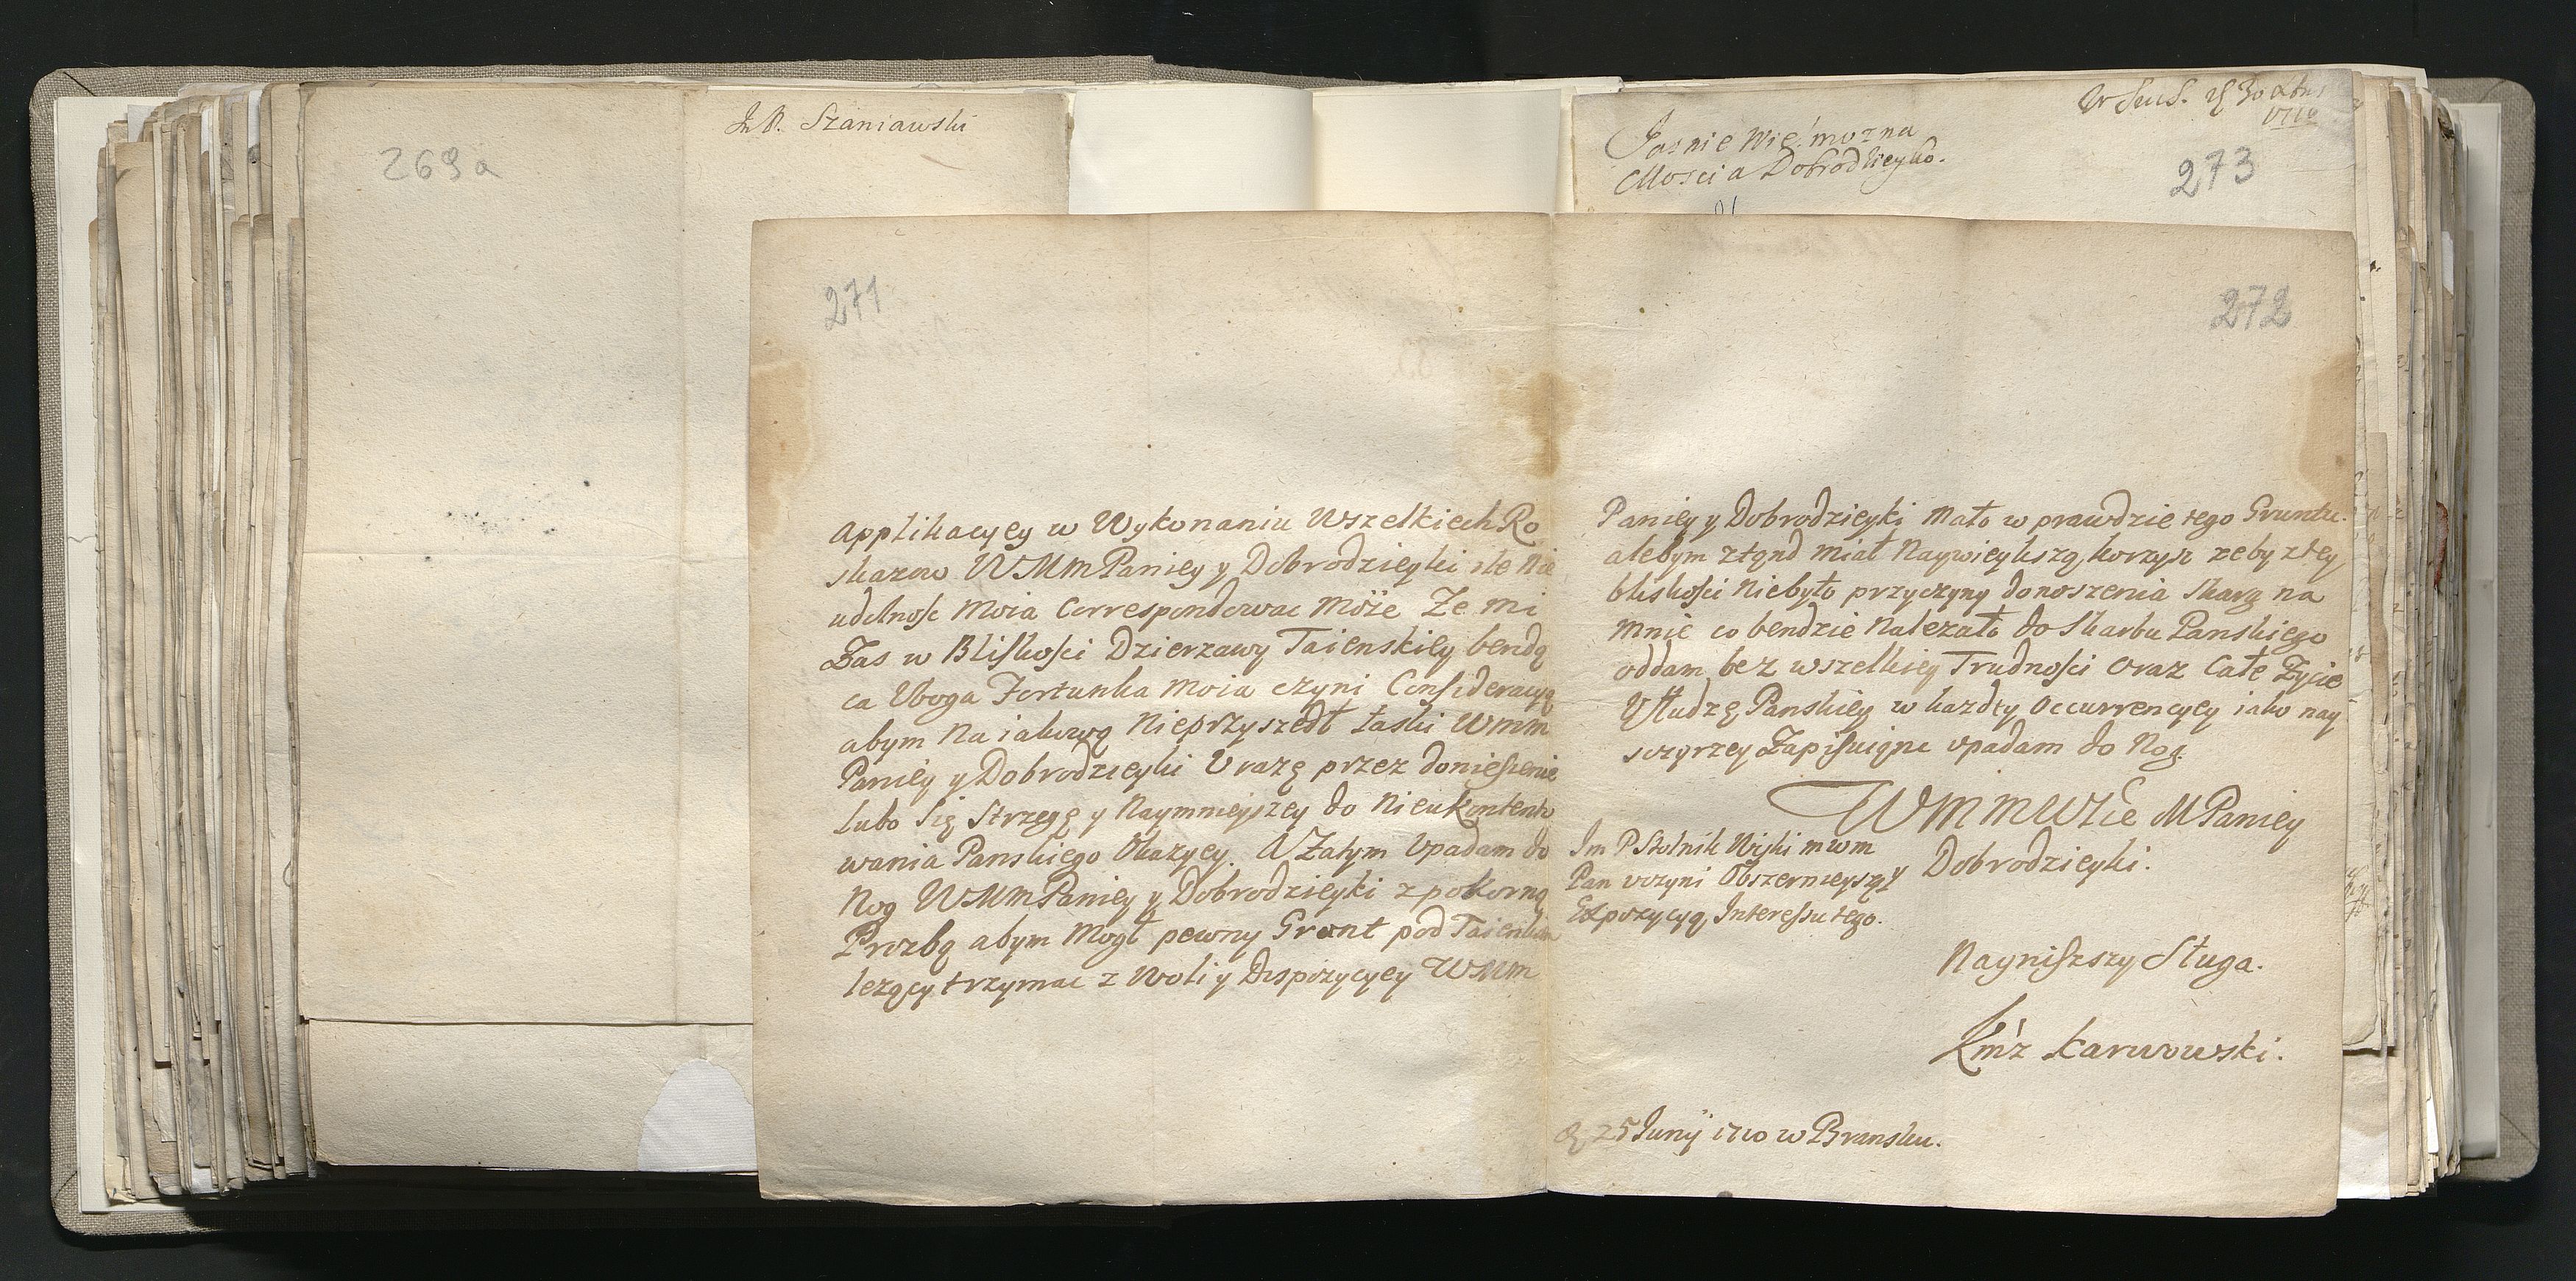 269a
Szaniawski
30
1710
Jasnie Wielmozna
Mościa Dobrodzieyko.
273
271
Applikacyey w Wykonaniu Wszelkiech Ro
skazow WMmPaniey y Dobrodzieyki ile Nie
udolnośc Moia Correspondowac Może Ze mi
Zas w Bliskości Dzierzawy Taienskiey bendą
ca Uboga Fortunka Moia czyni Consideracyą
abym Na iakowq Nieprzyszedł Łaski Wmm
Paniey y Dobrodzieyki Urazę przez doniesienie
lubo Się Strzegę y Naymnieyszey do Nieukontento
wania Panskiego Okazyey. A Zatym Upadam do
Nog WMmPaniey y Dobrodzieyki z pokorną
Prozbą abym Mogł pewny Gront pod Taienkem
lezący trzymac z Woli y Dispozycyey WMm
272
Paniey y Dobrodzieyki Mało w prawdzie tego Gruntu.
alebym ztąnd miał Naywieykszą korzysc zeby ztey
bliskości Niebyło przyczyny donoszenia Skarg na
Mnie co bendzie Nalezało do Skarbu Panskiego
oddam bez wszelkiey Trudności oraz Całe Zycie
Usłudzę Panskiey w kazdey Occurrencyey iako nay
sczyrzey Zapisuiąnc upadam do Nog.
WMMWMcie MPaniey
Dobrodzieyki.
Im P Stolnik Wiski mwm
Pan uczyni Obszernieyszą
Expozycyą Interessu tego.
Nayniszszy Sługa.
Kmz Karwowski.
25 Junij 1710 w Bransku.